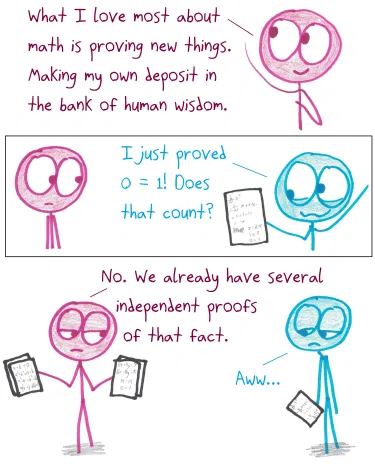 What I love most about
math is proving new things.
Making my own deposit in
the bank of human wisdom.
I just proved
0 = 1! Does
that count?
No. We already have several
independent proofs
of that fact.
Aww...